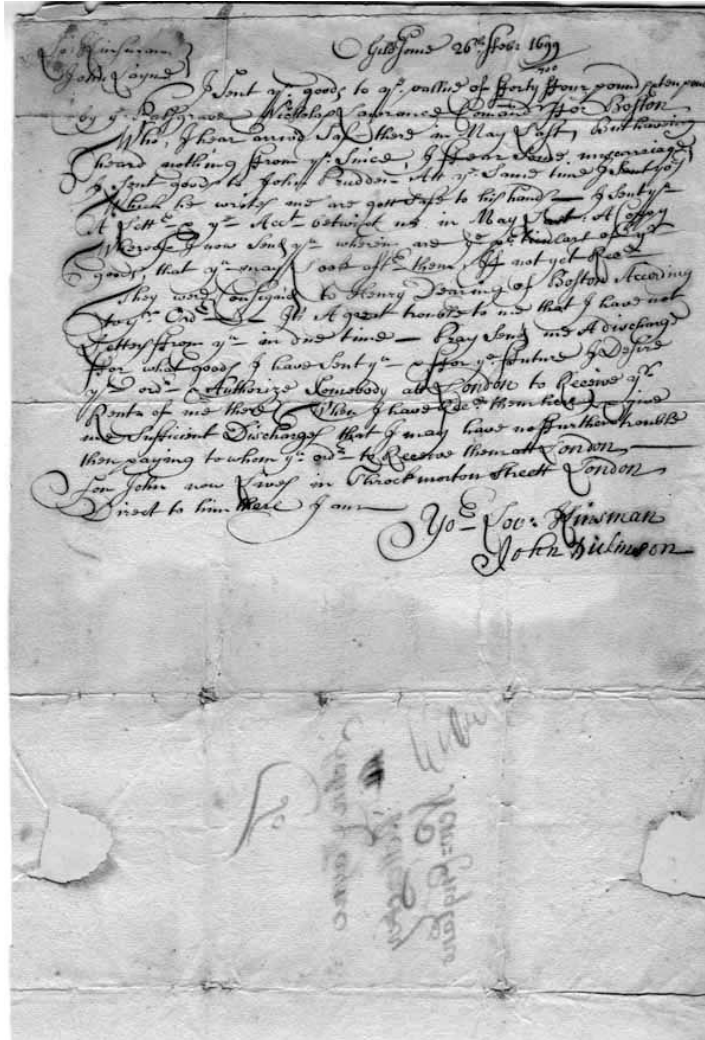 Lo: Kinsman Gildsome 26th Febr 1699
John Layne
I Sent yu goods to ye vallue of fforty ffour pound & ten
by ye Nicholas Lawrance Comander ffor Boston
Who, I hear arrivd Safe there in May Last, But having
heard nothing ffrom yu Since, I ffear Some miscarriage
I Sent goods to John Prudden Att ye Same time I Sent yos
Which he writes me are gott Safe to his hands — I Sent yu
A Lettr & ye Acct betwixt us in May Last: A Coppy
Whereof I now Send yu wherein are ye pticulars of yr
goods that yu may Look aftr them, Iff not yet Recd
They were Consignd to Henry Dearing of Boston According
to yr Ordr — Its A great trouble to me that I have not
Letters ffrom yu in due time — Pray Send me A discharge
ffor what goods I have Sent yu & ffor ye ffuture I Desire
yu ordr & Authorize Somebody att London to Receive yr
Rents of me there When I have Recd them here & give
me Sufficient Discharges that I may have no ffurther trouble
then paying to whom yu ordr to Receive them att London —
Son John now Lives in Throckmorton Street London
Direct to him there I am
Yor Lov: Kinsman
John Dickinson
John Layne
New England